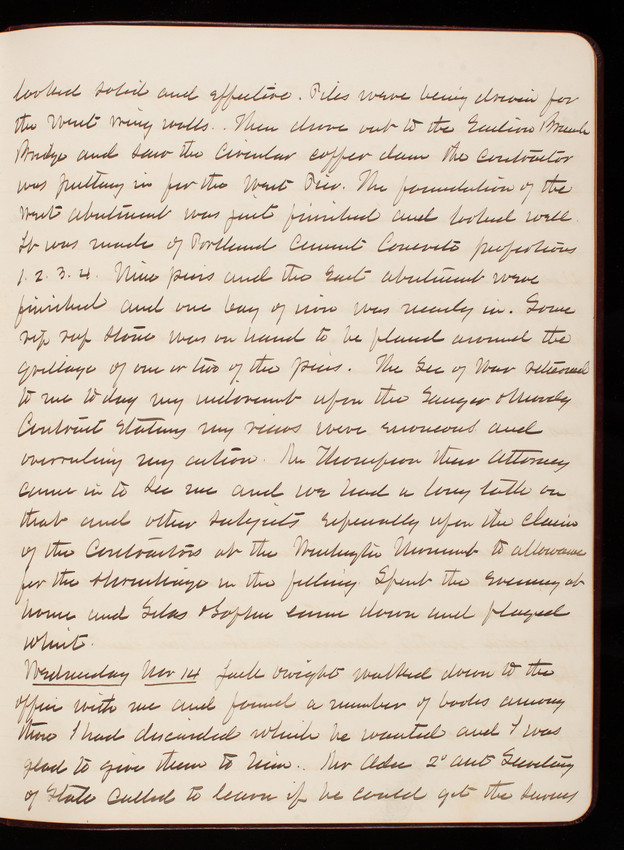 looked solid and effective. Piles were being driven for
the West wing walls. Then drove out to the Eastern Branch
Bridge and saw the circular coffer dam the contractor
was putting in for the West Pier. The foundation of the
West abutment was just finished and looked well
It was made of Portland Cement Concrete proportions
1. 2. 3. 4. Nine piers and the East abutment were
finished and one bay of iron was nearly in. Some
rip rap stone was on hand to be placed around the
grillage of one or two of the piers. The Sec of War returned
to me today my indorsement upon the
Contract stating my views were erroneous and
overruling my action. Mr Thompson their Attorney
came in to see me and we had a long talk on
that and other subjects especially upon the claim
of the Contractors at the Washington Monument to allowance
for the shrinkage in the filling. Spent the Evening at
home and & Sophie came down and played
whist.
Wednesday Nov 14 Jack Dwight walked down to the
office with me and found a number of books among
those I had discarded which he wanted and I was
glad to give them to him. Mr Adee 2d asst Secretary
of State called to learn if he could get the services